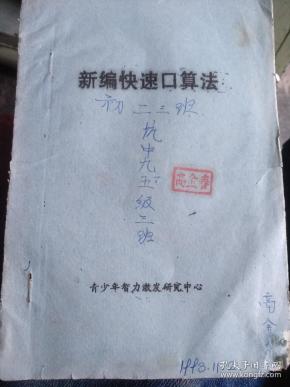 新编快速口算法
初二三班
坑中九五级三班
高金春
青少年智力激发研究中心
高金
1993.11
孔夫子旧书网